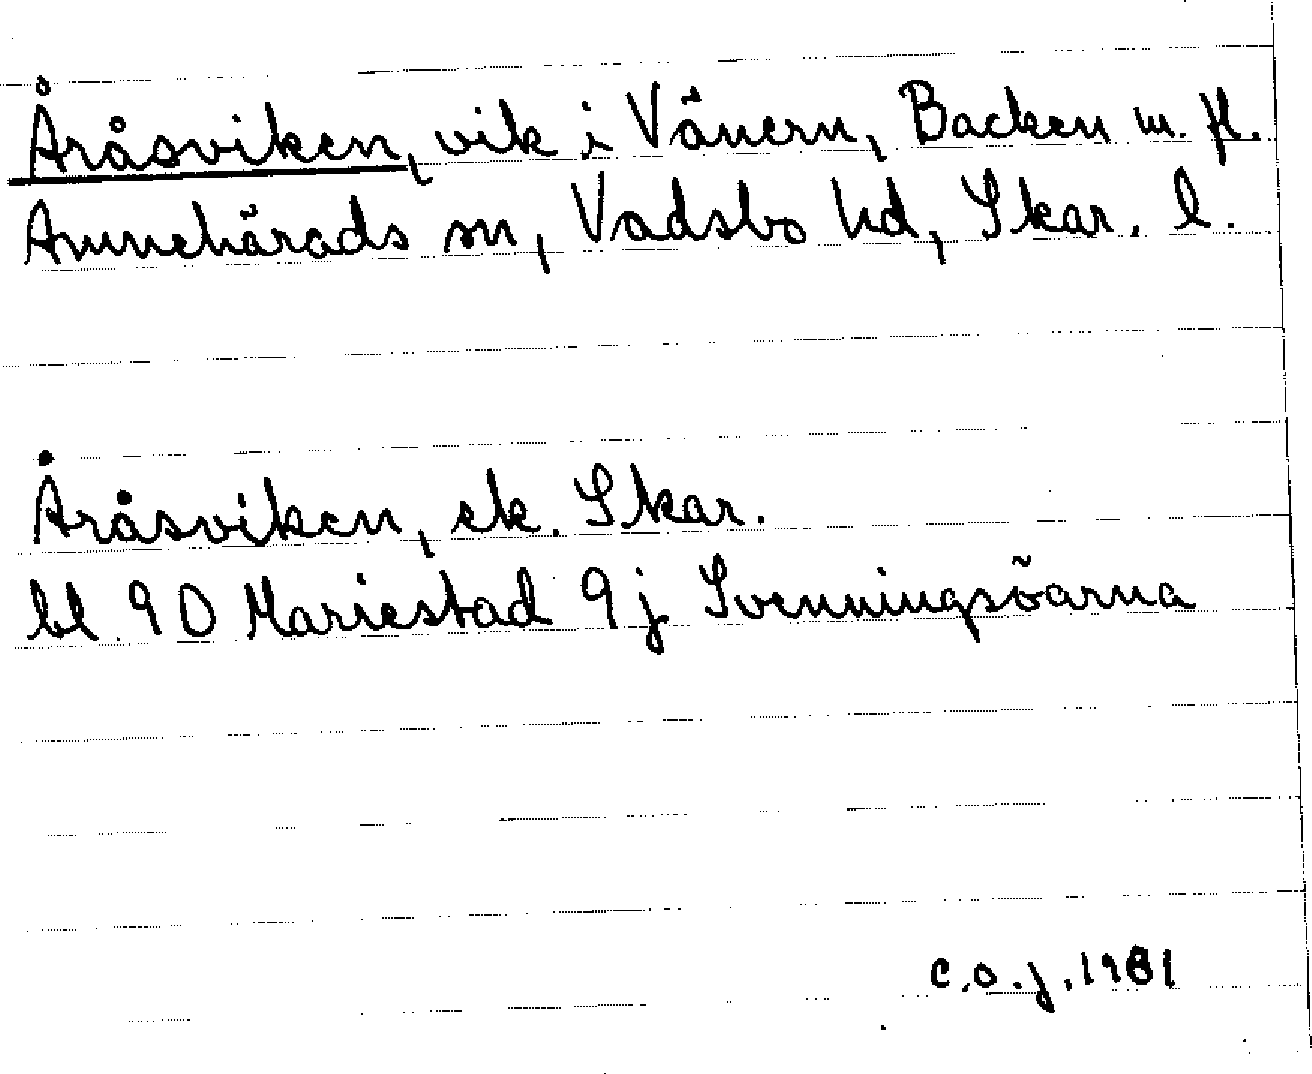 Åråsviken, vik i Vänern, Backen m. fl.
Amnehärads sn, Vadsbo hd, Skar. l.
Åråsviken, ek. Skar.
bl 9D Mariestad 9j Svenningsöarna
C.O.J. 1981